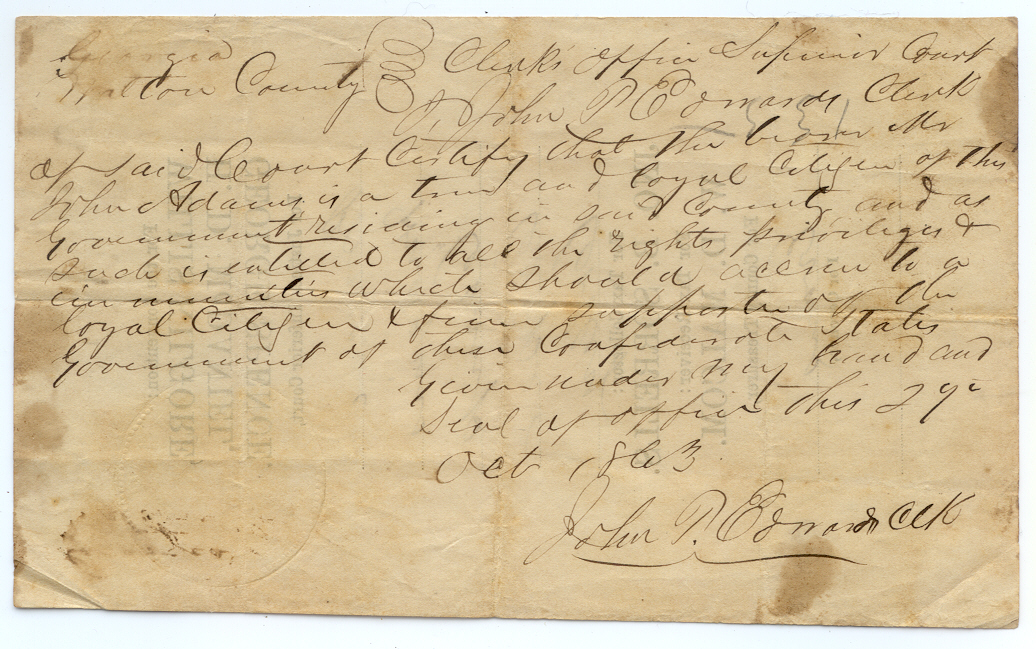 Georgia
Walton County } Clerk's office Superior Court
I, John P. Edwards Clerk
of said Court Certify that the bearer Mr
John Adams is a true and loyal Citizen of this
Government residing in said County and as
such is entitled to all the rights privileges &
immunities which should accrue to a
loyal Citizen & firm supporter of the
Government of these Confederate States
Given under my hand and
Seal of office this 29th
Oct 1863
John P. Edwards Clk